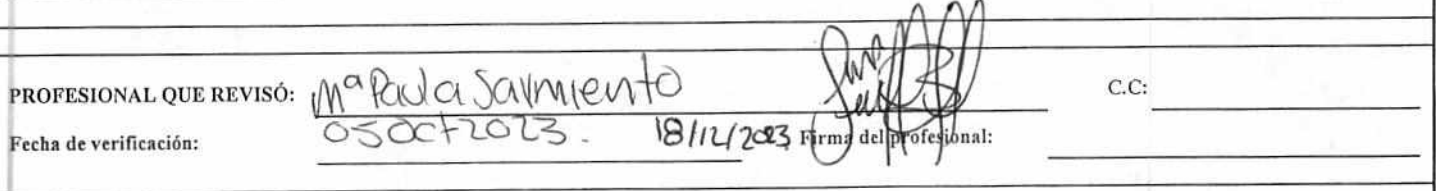 PROFESIONAL QUE REVISÓ: Mª Paula Sarmiento C.C:
Fecha de verificación: 05 Oct 2023. 18/12/2023 Firma del profesional: